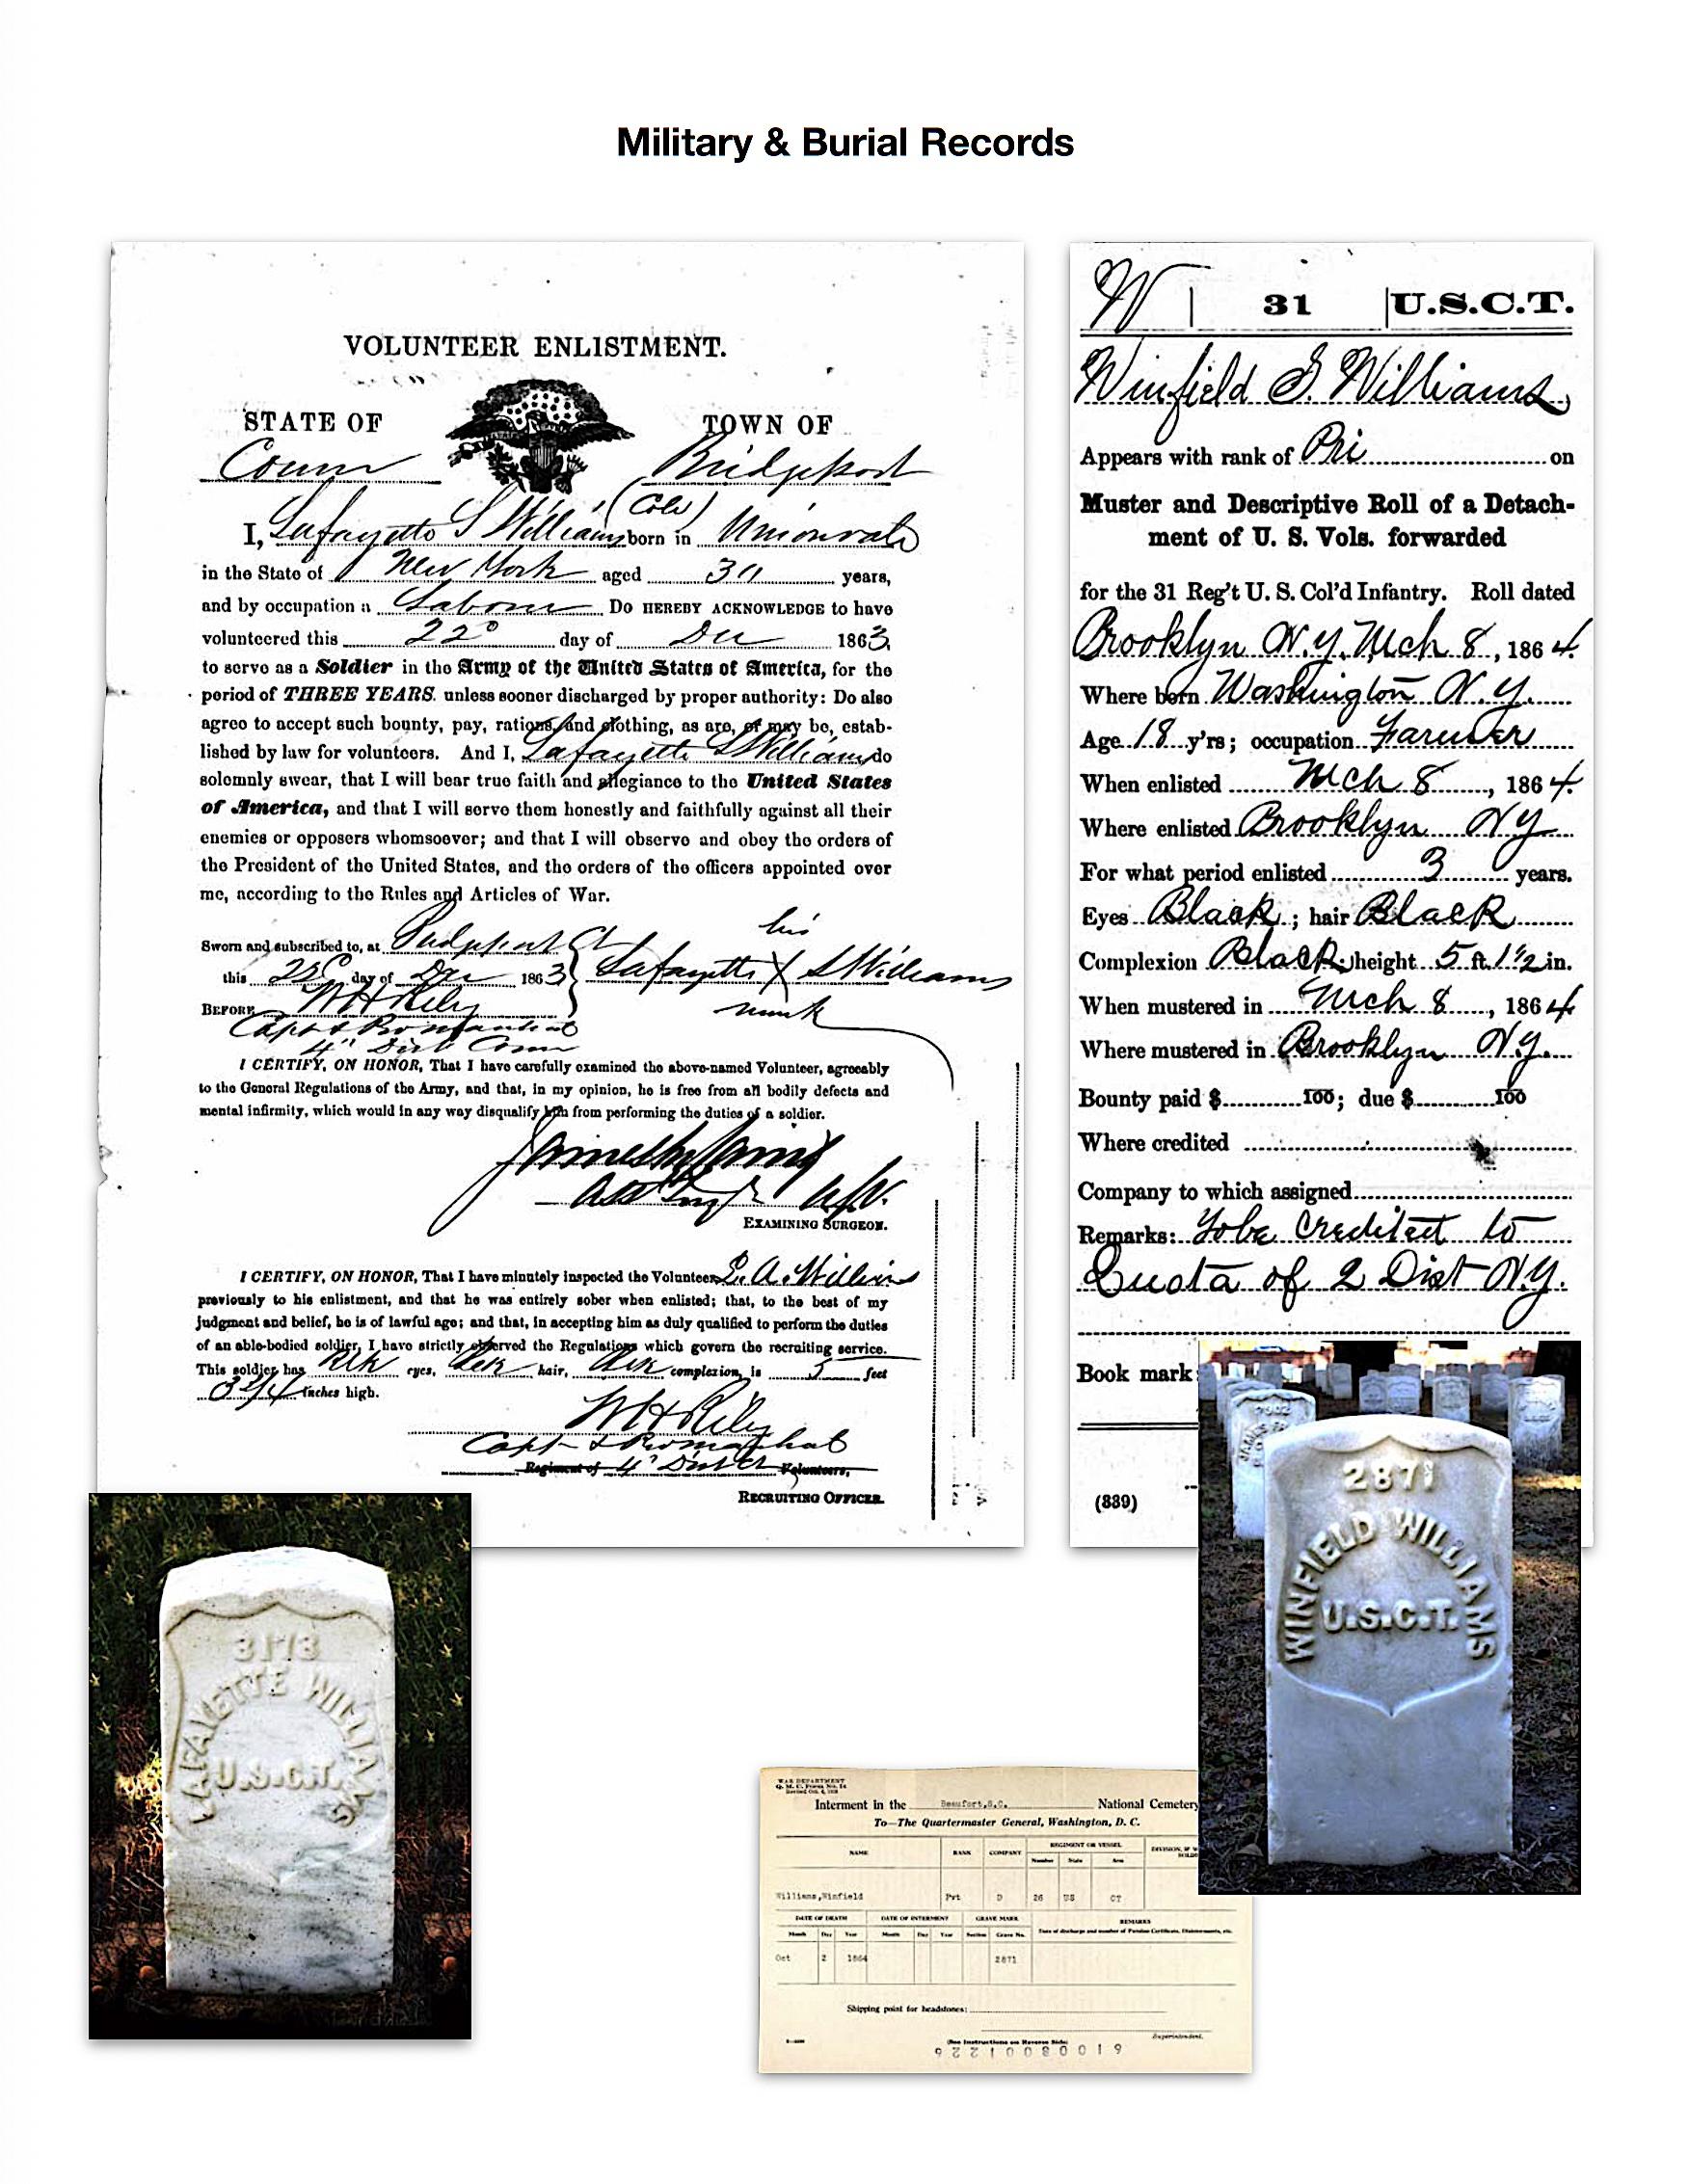 Military & Burial Records
VOLUNTEER ENLISTMENT.
STATE OF TOWN OF
Conn Bridgeport
(Cold)
I, Lafayette S Williams born in Unionvale
in the State of New York aged years,
and by occupation a Laborer Do HEREBY ACKNOWLEDGE to have
volunteered this 22d day of Dec 1863,
to serve as a Soldier in the Army of the United States of America, for the
period of THREE YEARS. unless sooner discharged by proper authority: Do also
agree to accept such bounty, pay, rations, and clothing, as are, or may be, estab-
lished by law for volunteers. And I, Lafayette S Williams do
solemnly swear, that I will bear true faith and allegiance to the United States
of America, and that I will serve them honestly and faithfully against all their
enemies or opposers whomsoever; and that I will observe and obey the orders of
the President of the United States, and the orders of the officers appointed over
me, according to the Rules and Articles of War.
his
Sworn and subscribed to, at Bridgeport Ct
this 22d day of Dec 1863 Lafayette X S Williams
BEFORE W H Riley mark
Capt & Pro Marshal
4" Dist Conn
I CERTIFY, ON HONOR, That I have carefully examined the above-named Volunteer, agreeably
to the General Regulations of the Army, and that, in my opinion, he is free from all bodily defects and
mental infirmity, which would in any way disqualify him from performing the duties of a soldier.
EXAMINING SURGEON.
I CERTIFY, ON HONOR, That I have minutely inspected the Volunteer,
previously to his enlistment, and that he was entirely sober when enlisted; that, to the best of my
judgment and belief, he is of lawful age; and that, in accepting him as duly qualified to perform the duties
of an able-bodied soldier, I have strictly observed the Regulations which govern the recruiting service.
This soldier has Blk eyes, Blk hair, Blk complexion, is 5 feet
3 3/4 inches high.
W H Riley
Capt & Pro Marshal
Regiment of 4" Dist Ct Volunteers,
RECRUITING OFFICER.
W 31 U.S.C.T.
Winfield S. Williams
Appears with rank of Pri on
Muster and Descriptive Roll of a Detach-
ment of U. S. Vols. forwarded
for the 31 Reg't U. S. Col'd Infantry. Roll dated
Brooklyn N.Y. Mch 8, 1864.
Where born Washington N.Y.
Age 18 y'rs; occupation Farmer
When enlisted Mch 8, 1864.
Where enlisted Brooklyn NY
For what period enlisted 3 years.
Eyes Black; hair Black
Complexion Black; height 5 ft. 1 1/2 in.
When mustered in Mch 8, 1864
Where mustered in Brooklyn N.Y.
Bounty paid $ 100; due $ 100
Where credited
Company to which assigned
Remarks: To be credited to
Quota of 2 Dist N.Y.
Book mark:
(839)
3173
LAFAYETTE WILLIAMS
U.S.C.T.
2871
WINFIELD WILLIAMS
U.S.C.T.
WAR DEPARTMENT
Q. M. C. Form No. 14
Interment in the Beaufort,S.C. National Cemetery
To—The Quartermaster General, Washington, D. C.
NAME RANK COMPANY REGIMENT OR VESSEL
Number State Arm
Williams,Winfield Pvt D 26 US CT
DATE OF DEATH DATE OF INTERMENT GRAVE MARK REMARKS
Month Day Year Month Day Year Section Grave No. Date of discharge and number of Pension Certificate, Disinterments, etc.
Oct 2 1864 2871
Shipping point for headstones:
Superintendent.
(See Instructions on Reverse Side)